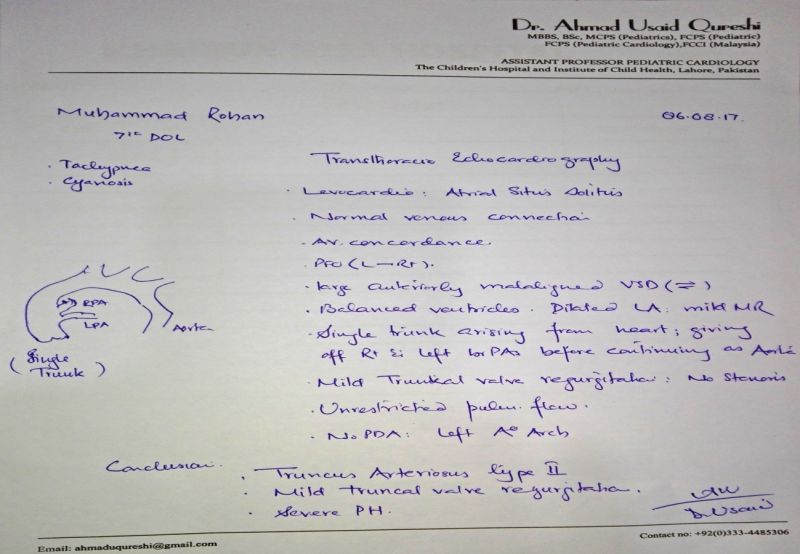 Dr. Ahmad Usaid Qureshi
MBBS, BSc, MCPS (Pediatrics), FCPS (Pediatric)
FCPS (Pediatric Cardiology),FCCI (Malaysia)
ASSISTANT PROFESSOR PEDIATRIC CARDIOLOGY
The Children's Hospital and Institute of Child Health, Lahore, Pakistan
Muhammad Rohan
06.08.17.
DOL
· Tachypnea
· Cyanosis
Transthoracic Echocardiography
· Levocardia: Atrial Situs Solitus
· Normal venous connection
· AV. concordance.
· PFO (L→Rt).
· large anteriorly malaligned VSD (⇌)
· Balanced ventricles. Dilated LA. mild MR
· Single trunk arising from heart; giving
off Rt & left br PAs before continuing as Aorta
· Mild Truncal valve regurgitation; No Stenosis
· Unrestricted pulm. flow.
· No PDA: left Ao Arch
RPA
LPA
Aorta
(Single
Trunk)
Conclusion.
· Truncus Arteriosus type II
· Mild truncal valve regurgitation.
· Severe PH.
Dr Usaid
Email: ahmaduqureshi@gmail.com
Contact no: +92(0)333-4485306